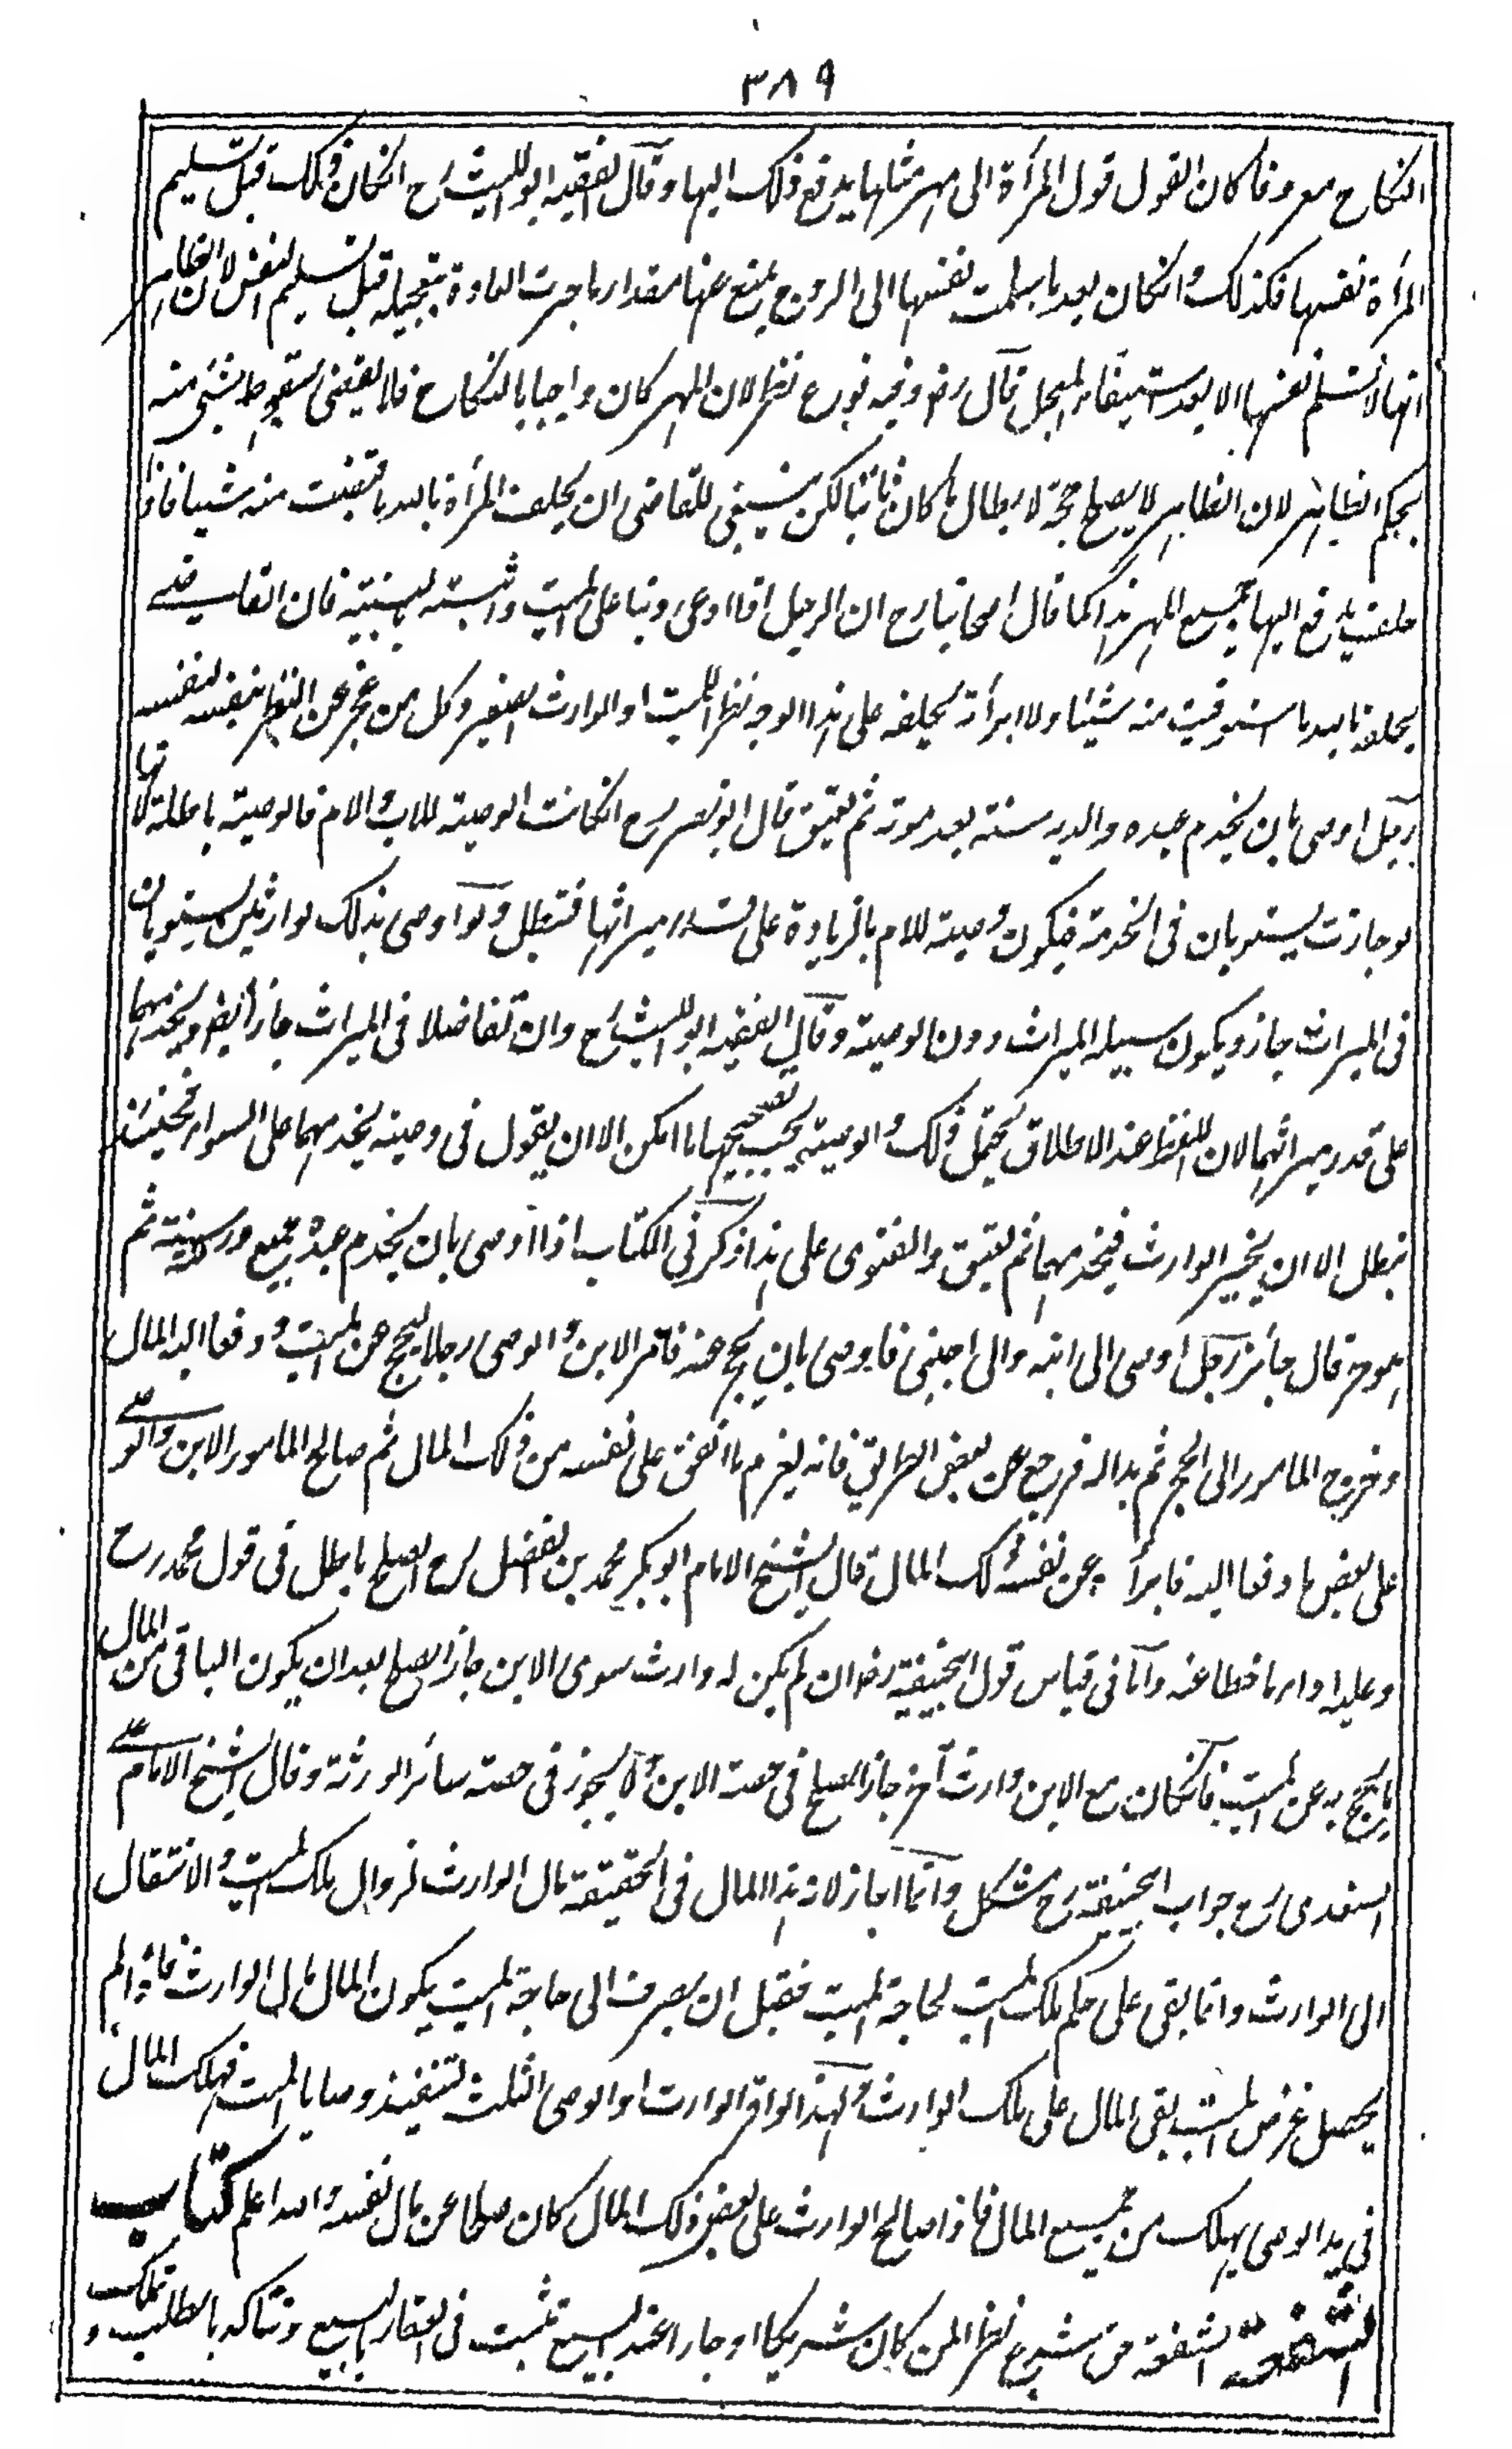 ٣٨٩
النكاح معروفا كان القول قول المرأة الى مهر مثلها يدفع ذلك اليها وقال الفقيه ابو الليث رح انكان ذلك قبل تسليم
المرأة نفسها فكذلك وانكان بعد ما سلمت نفسها الى الزوج يمنع عنها مقدار ما جرت العادة بتعجيله قبل تسليم النفس لان الظاهر
انها لا تسلم نفسها الا بعد استيفاء المعجل قال رض وفيه نوع نظر لان المهر كان واجبا بالنكاح فلا يقضى بسقوط شئ منه
بحكم الظاهر لان الظاهر لا يصلح حجة لابطال ما كان ثابتا لكن ينبغي للقاضى ان يحلف المرأة بالله ما قبضت منه شيئا فاذا
حلفت يدفع اليها جميع المهر هذا كما قال اصحابنا رح ان الرجل اذا ادعى دينا على الميت واثبته بالبينة فان القاضى
يحلفه بالله ما استوفيت منه شيئا ولا ابرأته يحلفه على هذا الوجه نظرا للميت او الوارث الصغير وكل من عجز عن النظر بنفسه لنفسه
رجل اوصى بان يخدم عبده والديه سنة بعد موته ثم يعتق قال ابو نصر رح انكانت الوصية للاب والام فالوصية باطلة لانها
لو جازت يستويان فى الخدمة فيكون وصية للام بالزيادة على قدر ميراثها فتبطل ولو اوصى بذلك لوارثين يستويان
فى الميراث جاز ويكون سبيله الميراث دون الوصية وقال الفقيه ابو الليث رح وان تفاضلا فى الميراث جاز ايضا ويخدمهما
على قدر ميراثهما لان اللفظ عند الاطلاق يحتمل ذلك والوصية يجب تصحيحها ما امكن الا ان يقول فى وصيته يخدمهما على السواء فحينئذ
تبطل الا ان يخير الوارث فيخدمهما ثم يعتق والفتوى على هذا ذكر فى الكتاب اذا اوصى بان يخدم عبده جميع ورثته سنة ثم
هو حر قال جائز رجل اوصى الى ابنه والى اجنبى فاوصى بان يحج عنه فامر الابن والوصى رجلا ليحج عن الميت ودفعا اليه المال
وخرج المامور الى الحج ثم بدا له فرجع عن بعض الطريق فانه يغرم ما انفق على نفسه من ذلك المال ثم صالح المامور الابن والوصى
على بعض ما دفعا اليه فابرأ عن نفسه ذلك المال قال الشيخ الامام ابو بكر محمد بن الفضل رح الصلح باطل فى قول محمد رح
وعليه اداء ما حطا عنه واما فى قياس قول ابيحنيفة رض ان لم يكن له وارث سوى الابن جاز الصلح بعد ان يكون الباقى من المال
ما يحج به عن الميت فانكان مع الابن وارث آخر جاز الصلح فى حصة الابن ولا يجوز فى حصة سائر الورثة وقال الشيخ الامام على
السغدى رح جواب ابيحنيفة رح مشكل وانما اجاز لان هذا المال فى الحقيقة مال الوارث لزوال ملك الميت والانتقال
الى الوارث وانما بقى على حكم ملك الميت لحاجة الميت فقبل ان يصرف الى حاجة الميت يكون المال مال الوارث فاذا لم
يحصل غرض الميت بقى المال على ملك الوارث ولهذا لو افرز الوارث او الوصى الثلث لتنفيذ وصايا الميت فهلك المال
فى يد الوصى يهلك من جميع المال فاذا صالح الوارث على بعض ذلك المال كان صلحا عن مال نفسه والله اعلم كتاب
الشفعة الشفعة حق شرع نظرا لمن كان شريكا او جارا عند البيع تثبت فى العقار بالبيع وتتاكد بالطلب و تملك